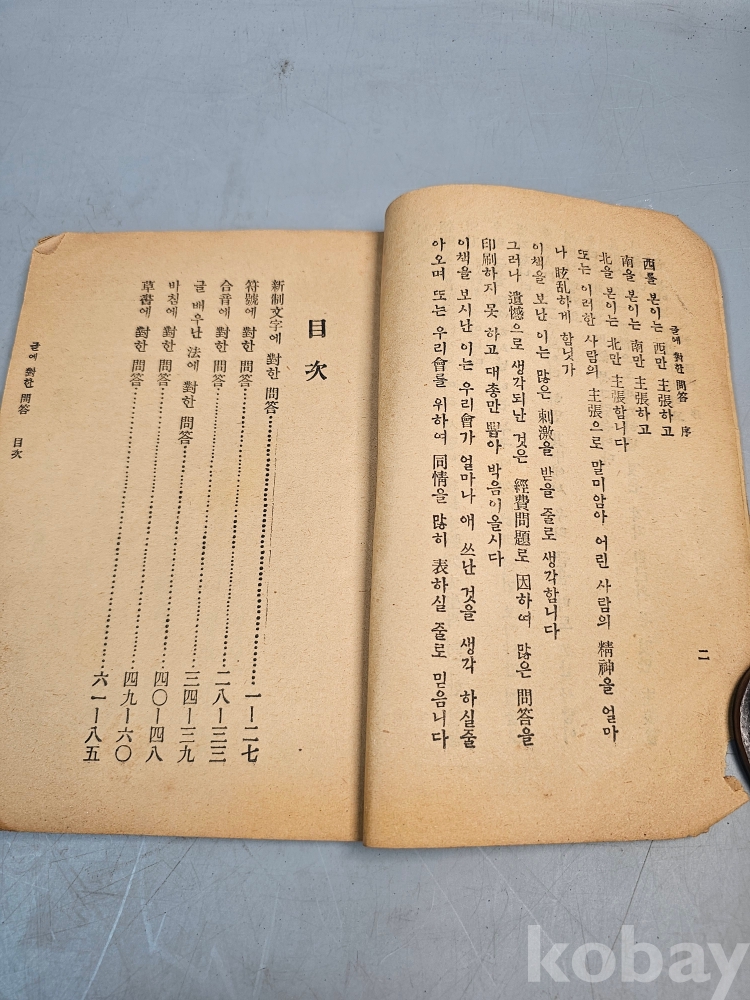 글에 對한 問答 序
二
西를 본이는 西만 主張하고
南을 본이는 南만 主張하고
北을 본이는 北만 主張합니다
또는 이러한 사람의 主張으로 말미암아 어린 사람의 精神을 얼마
나 眩乱하게 함닛가
이책을 보난 이는 많은 刺激을 받을 줄로 생각함니다
그러나 遺憾으로 생각되난 것은 經費問題로 因하여 많은 問答을
印刷하지 못 하고 대총만 뽑아 박음이올시다
이책을 보시난 이는 우리會가 얼마나 애 쓰난 것을 생각 하실줄
아오며 또는 우리會를 위하여 同情을 많히 表하실 줄로 믿음니다
目次
新制文字에 對한 問答 一ー二七
符號에 對한 問答 二八ー三三
合音에 對한 問答 三四ー三九
글 배우난 法에 對한 問答 四〇ー四八
바침에 對한 問答 四九ー六〇
草書에 對한 問答 六一ー八五
글에 對한 問答 目次
kobay